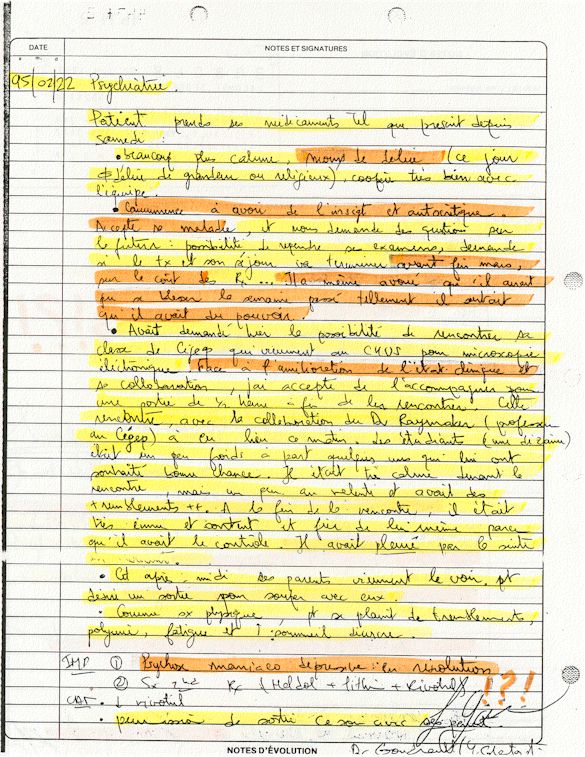 DATE
NOTES ET SIGNATURES
a m j
95/02/22 Psychiatrie.
Patient prends ses médicaments tel que prescrit depuis
samedi :
• beaucoup plus calme, moins de délire (ce jour
φ délire de grandeur ou religieux), coopère très bien avec
l'équipe.
• Commence à avoir de l'insigt et autocritique.
Accepte sa maladie, et nous demande des question sur
le future : possibilité de reprendre se examens, demande
si le tx et son séjour va terminer avant fin mars,
sur le coût des Rx ... Il a même avoué qu'il aurait
pu se blesser la semaine passé tellement il sentait
qu'il avait du pouvoir.
• Avait demandé hier la possibilité de rencontrer sa
classe de Cégep qui viennent au CHUS pour microscopie
éléctronique. Face à l'amélioration de l'état clinique et
sa collaboration, j'ai accepté de l'accompagner pour
une sortie de ½ heure à fin de les rencontrer. Cette
rencontre, avec la collaboration du Dr Raymaker (professeur
au Cégep) à eu lieu ce matin. Des étudiants (une dizaine)
était un peu froids à part quelques uns qui lui ont
souhaité bonne chance. Il était très calme durant la
rencontre, mais un peu au ralenti et avait des
+ tremblements ++. A la fin de la rencontre, il était
très ému et content et fier de lui même parce
qu'il avait le contrôle. Il avait pleuré par la suite
• Cet après-midi ses parents viennent le voir, pt
désire un sortie pour souper avec eux.
• Comme sx physique, pt se plaint de tremblements,
polyurie, fatigue et sommeil diurne.
IMP ① Psychose maniaco depressive en résolution
② Sx 2nd Rx (Haldol + lithium + Rivotril)
CAT • ↓ rivotril
• permission de sortie ce soir avec ses parent.
!?!
NOTES D'ÉVOLUTION